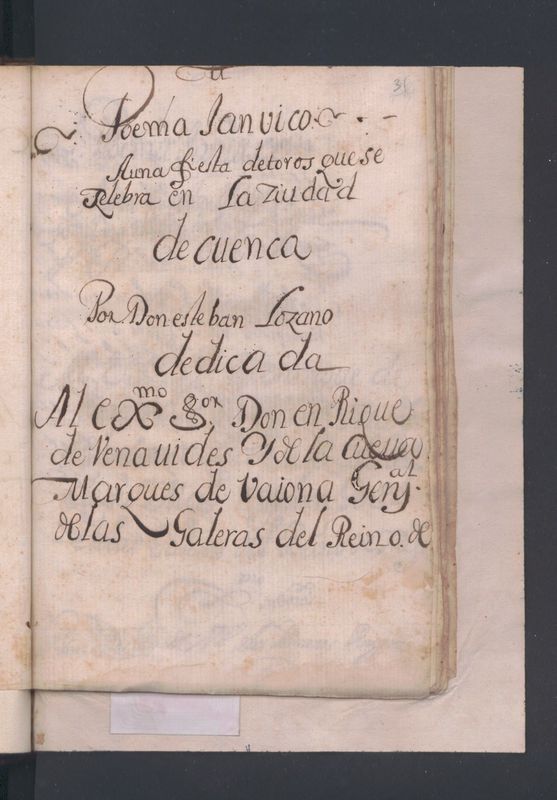 31
Poema Janvico
Auna fiesta detoros que se
Zelebra en La Ziudad
de cuenca
Por Don esteban Lozano
dedicada
Al exmo Sor, Don en Rique
de Venauides Y de la Cueua
Marques de Vaiona Genj.al
de las Galeras del Reino. de